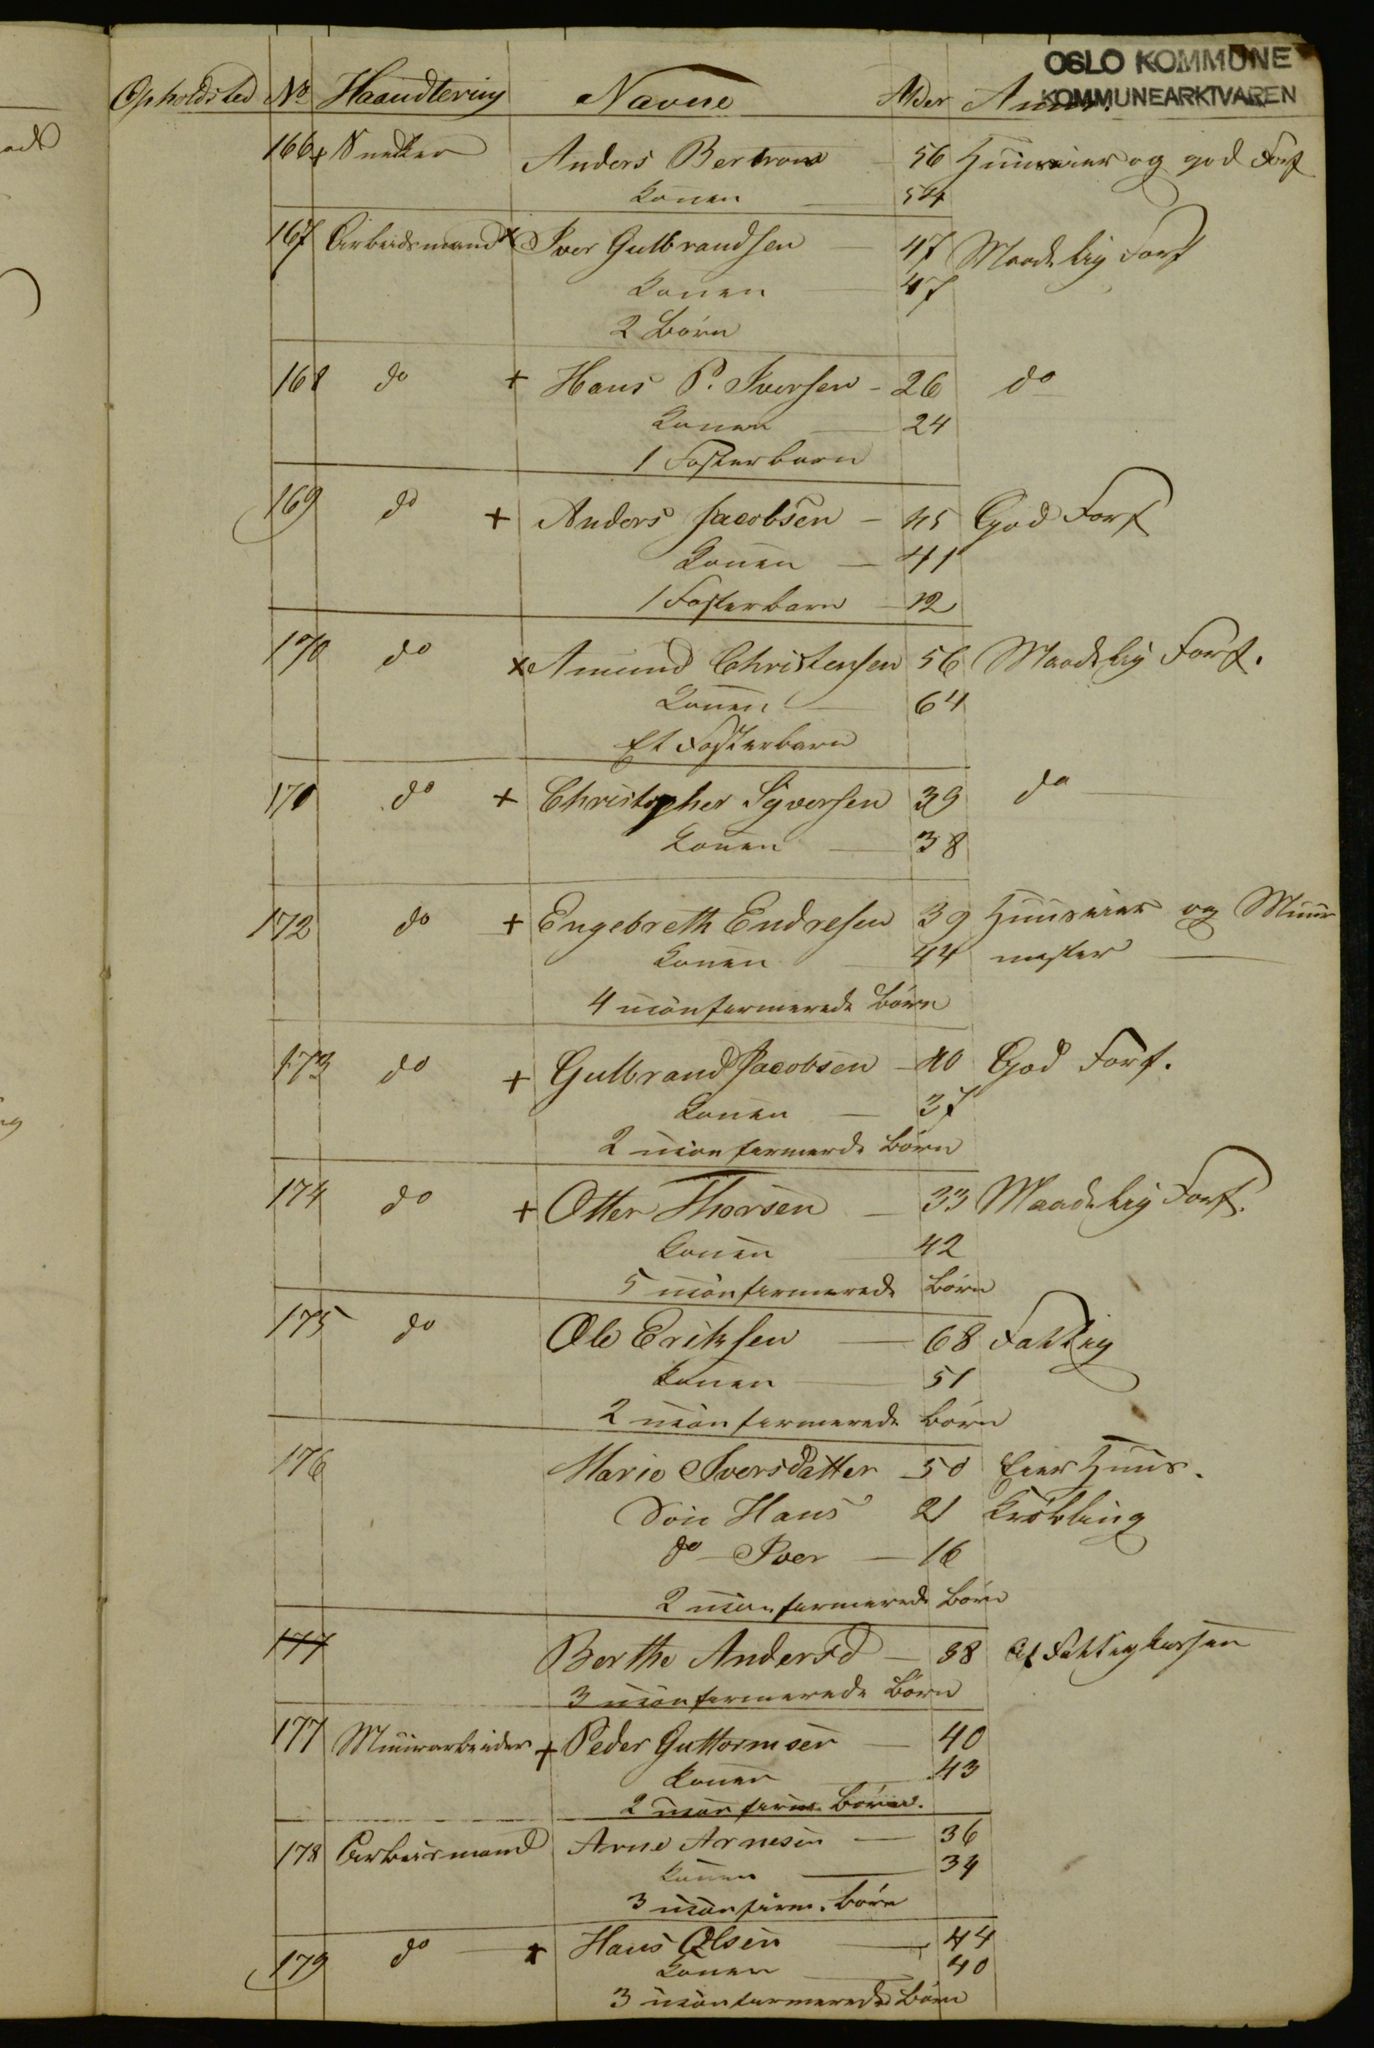 OSLO KOMMUNE
KOMMUNEARKIVAREN
Opholdsted No Haandtering Navne Alder Anm.
166 + Snedker Anders Bertrona 56 Huuseier og god Forf
konen 54
167 Arbeidsmand x Iver Gulbrandsen 47 Maadelig Forf
konen 47
2 børn
168 do + Hans P. Iversen - 26 do
konen 24
1 Fosterbarn
169 do + Anders Jacobsen - 45 God Forf
konen - 41
1 Fosterbarn - 12
170 do x Amund Christensen 56 Maadelig Forf.
konen 64
Et Fosterbarn
171 do + Christopher Syversen 39 do
konen 38
172 do + Engebreth Endresen 39 Huuseier og Muur
konen 44 mester
4 uconfermerede børn
173 do + Gulbrand Jacobsen - 40 God Forf.
konen - 37
2 uconfermerde børn
174 do + Otter Thorsen - 33 Maadelig Forf.
konen 42
5 uconfermerede børn
175 do Ole Eriksen - 68 Fattig
konen - 51
2 uconfermerede børn
176 Marie Iversdatter - 50 Eier Huus.
Søn Hans 21 Krøbling
do - Iver - 16
2 uconfermerede børn
177 Berthe Andersd - 38 Af Fattigkassen
3 uconfermerede Børn
177 Muurarbeider + Peder Guttormsen - 40
konen 43
2 uconferm. Børn.
178 Arbeismand Arne Arnesen - 36
konen 34
3 uconferm. børn
179 do + Hans Olsen 44
konen 40
3 uconfermerede Børn